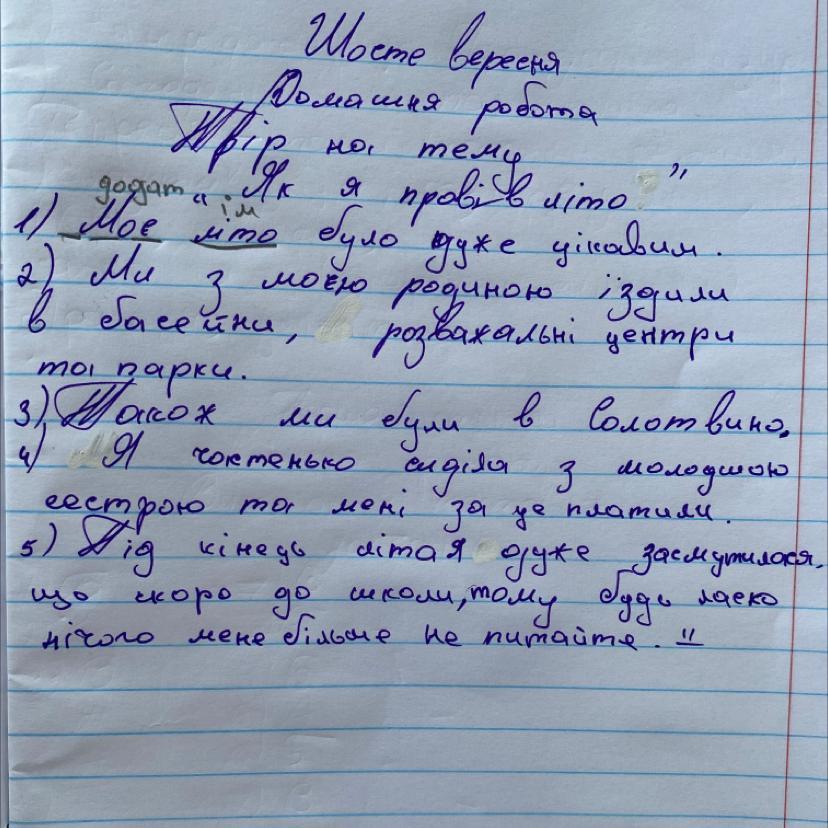 Шосте вересня
Домашня робота
Твір на тему
„Як я провів літо”
додат ім
1) Моє літо було дуже цікавим.
2) Ми з моєю родиною їздили
в басейни, розважальні центри
та парки.
3) Також ми були в Солотвино.
4) Я частенько сиділа з молодшою
сестрою та мені за це платили.
5) Під кінець літа я дуже засмутилася,
що скоро до школи, тому будь ласко
нічого мене більше не питайте. "